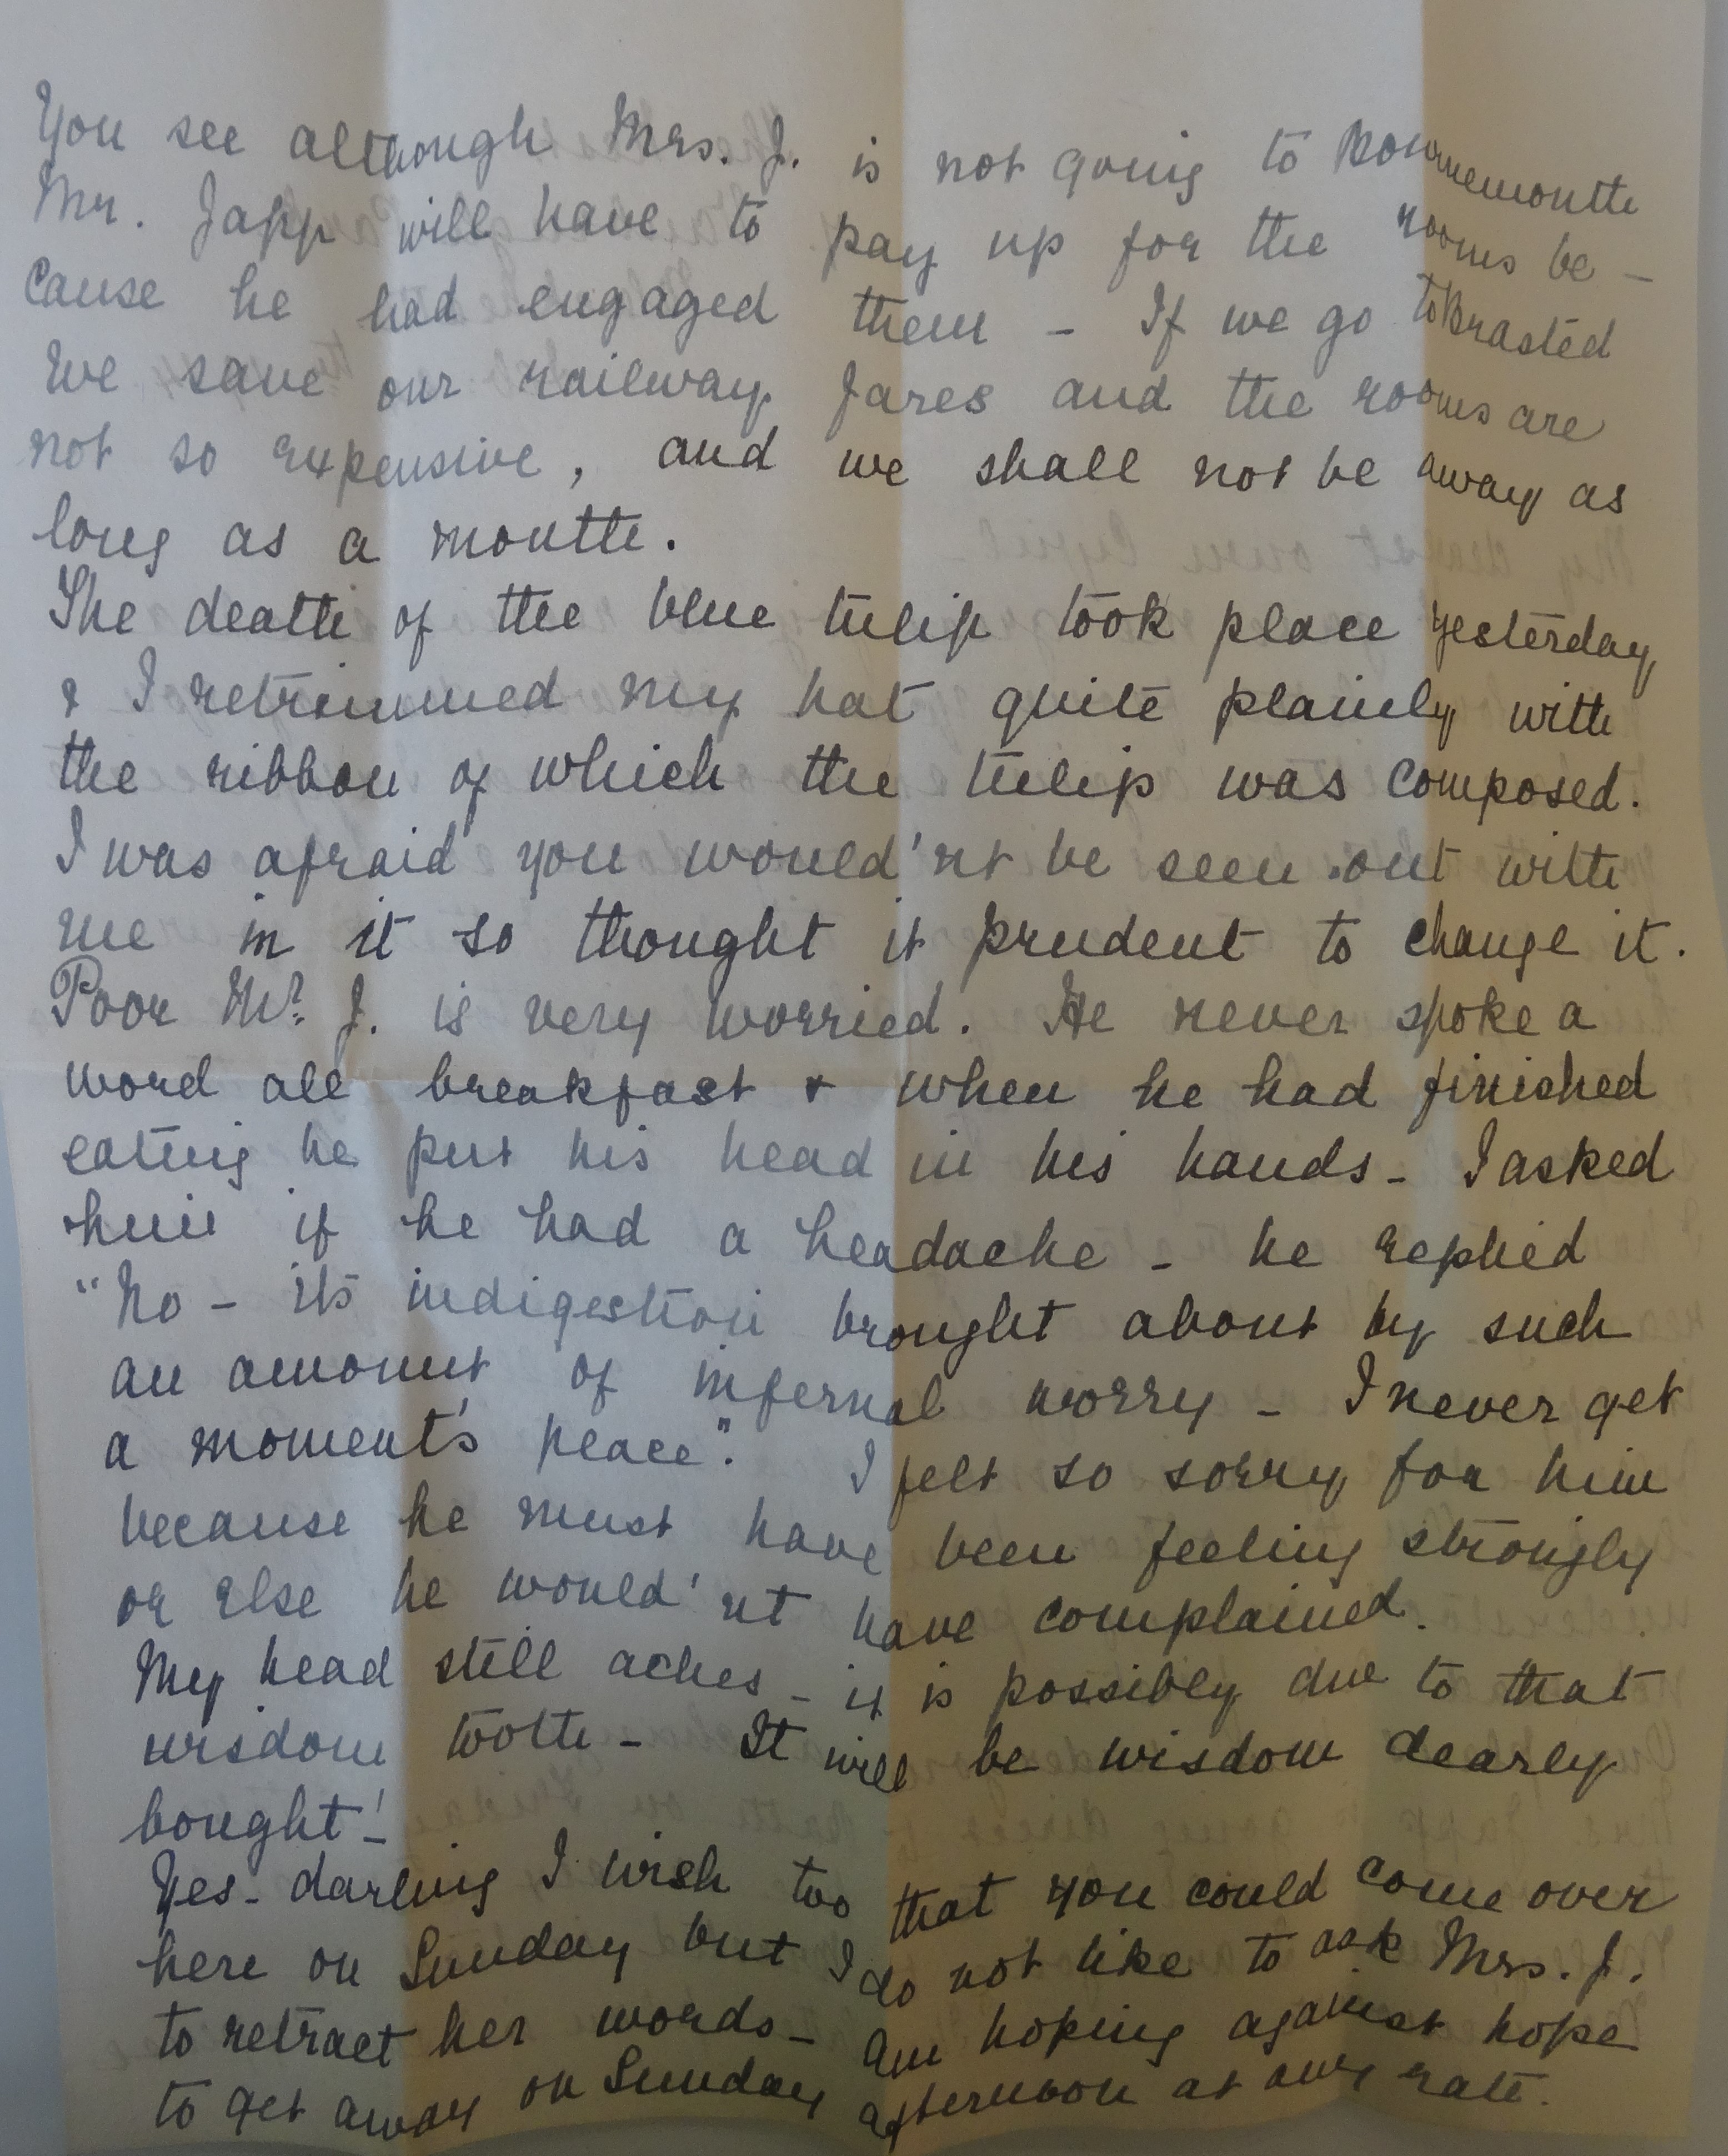 You see although Mrs. J. is not going to Bournemouth
Mr. Japp will have to pay up for the rooms be-
cause he had engaged them - If we go to Brasted
we save our railway fares and the rooms are
not so expensive, and we shall not be away as
long as a month.
The death of the blue tulip took place yesterday,
& I retrimmed my hat quite plainly with
the ribbon of which the tulip was composed.
I was afraid you would'nt be seen out with
me in it so thought it prudent to change it.
Poor Mr. J. is very worried. He never spoke a
word all breakfast & when he had finished
eating he put his head in his hands - I asked
him if he had a headache - he replied
"No - it's indigestion brought about by such
an amount of infernal worry - I never get
a moment's peace". I felt so sorry for him
because he must have been feeling strongly
or else he would'nt have complained.
My head still aches - it is possibly due to that
wisdom tooth - It will be wisdom dearly
bought!
Yes - darling I wish too that you could come over
here on Sunday but I do not like to ask Mrs. J.
to retract her words - Am hoping against hope
to get away on Sunday afternoon at any rate.